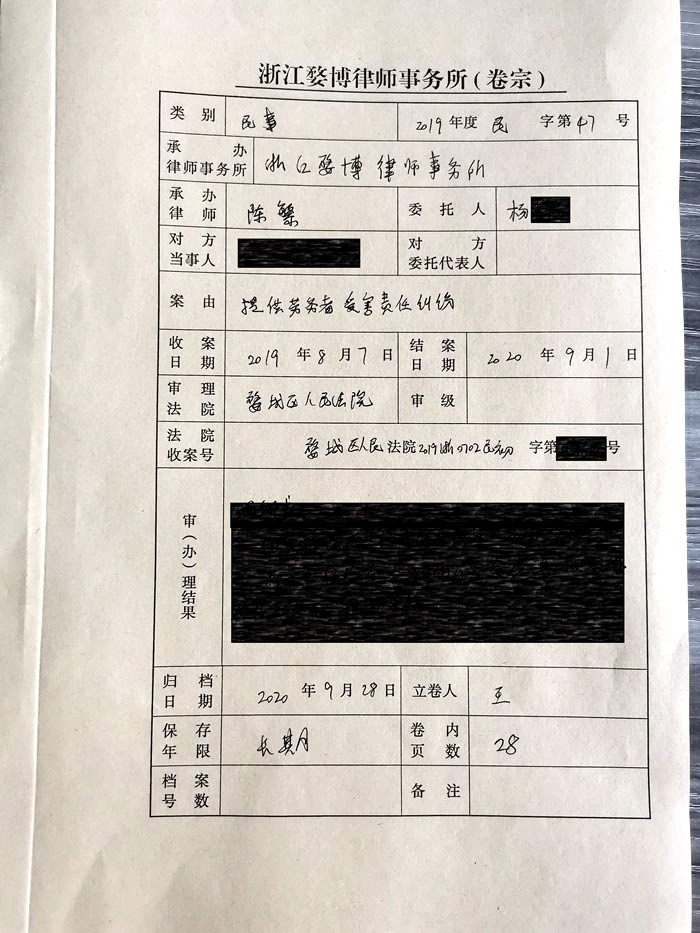 浙江婺博律师事务所(卷宗)
类别 民事 2019年度 民 字第47号
承办律师事务所 浙江婺博律师事务所
承办律师 陈 委托人 杨
对方当事人 对方委托代表人
案由 提供劳务者受害责任纠纷
收案日期 2019年8月7日 结案日期 2020年9月1日
审理法院 婺城区人民法院 审级
法院收案号 婺城区人民法院2019浙0702民初 字第 号
审(办)理结果
归档日期 2020年9月28日 立卷人 王
保存年限 长期 卷内页数 28
档案号数 备注